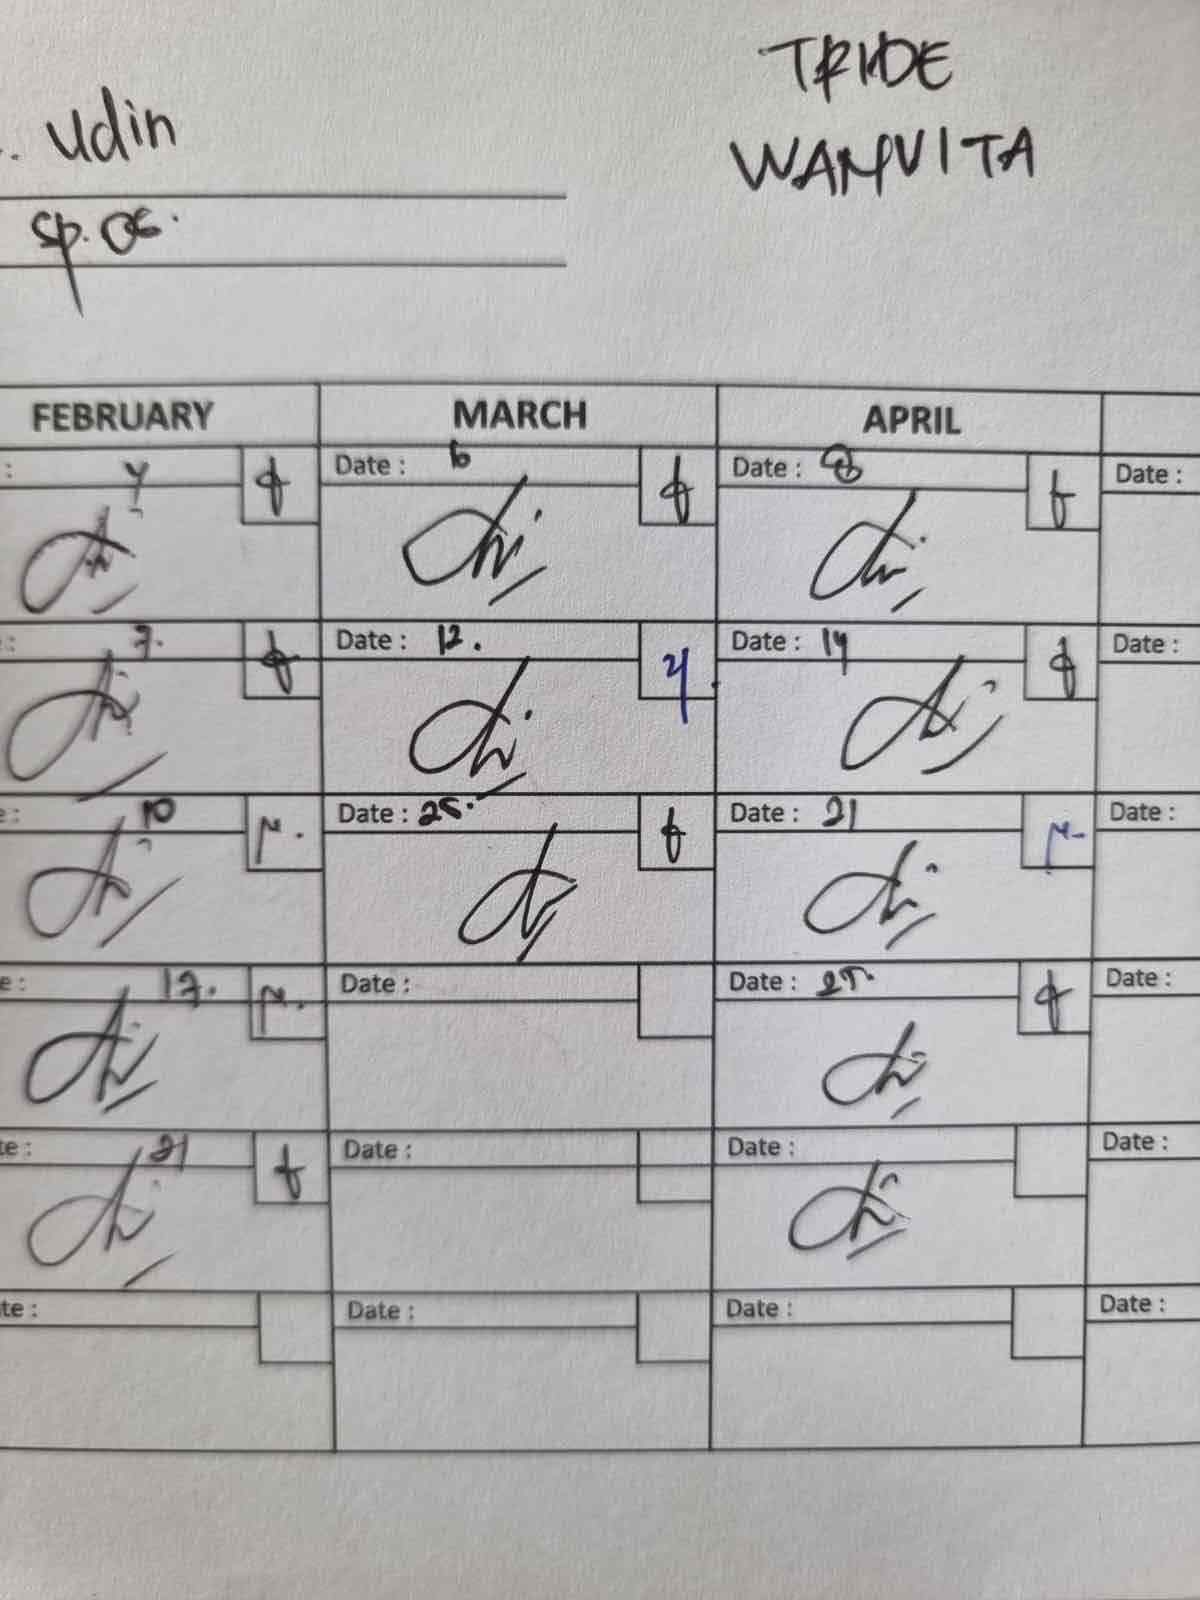 TRIDE
WAMVITA
. Udin
sp. OG.
FEBRUARY MARCH APRIL
: 4 Date : 6 Date : 8 Date :
: 7. Date : 12. Date : 14 Date :
e: 10 Date : 25. Date : 21 Date :
e: 17. Date : Date : 25. Date :
te: 21 Date : Date : Date :
te: Date : Date : Date :